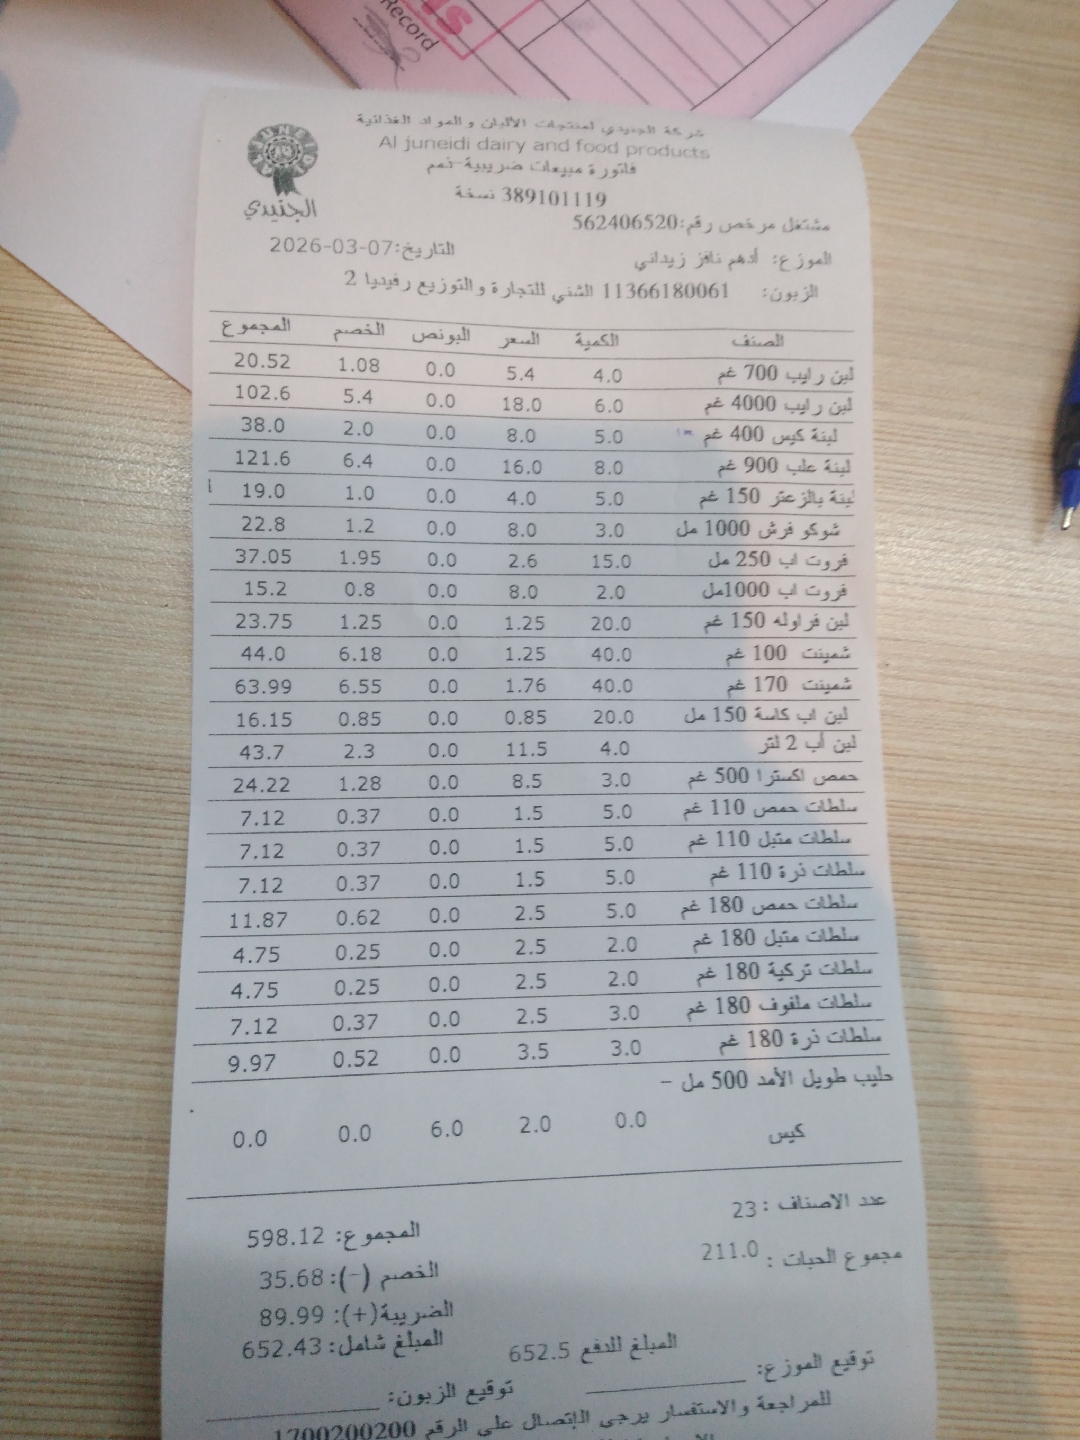 Record
شركة الجنيدي لمنتجات الألبان و المواد الغذائية
Al juneidi dairy and food products
فاتورة مبيعات ضريبية-ذمم
389101119 نسخة
الجنيدي
مشتغل مرخص رقم:562406520
الموزع: أدهم نافز زيداني التاريخ:2026-03-07
الزبون: 11366180061 الشني للتجارة والتوزيع رفيديا 2
الصنف الكمية السعر البونص الخصم المجموع
لبن رايب 700 غم 4.0 5.4 0.0 1.08 20.52
لبن رايب 4000 غم 6.0 18.0 0.0 5.4 102.6
لبنة كيس 400 غم 5.0 8.0 0.0 2.0 38.0
لبنة علب 900 غم 8.0 16.0 0.0 6.4 121.6
لبنة بالزعتر 150 غم 5.0 4.0 0.0 1.0 19.0
شوكو فرش 1000 مل 3.0 8.0 0.0 1.2 22.8
فروت اب 250 مل 15.0 2.6 0.0 1.95 37.05
فروت اب 1000مل 2.0 8.0 0.0 0.8 15.2
لبن فراوله 150 غم 20.0 1.25 0.0 1.25 23.75
شمينت 100 غم 40.0 1.25 0.0 6.18 44.0
شمينت 170 غم 40.0 1.76 0.0 6.55 63.99
لبن اب كاسة 150 مل 20.0 0.85 0.0 0.85 16.15
لبن أب 2 لتر 4.0 11.5 0.0 2.3 43.7
حمص اكسترا 500 غم 3.0 8.5 0.0 1.28 24.22
سلطات حمص 110 غم 5.0 1.5 0.0 0.37 7.12
سلطات متبل 110 غم 5.0 1.5 0.0 0.37 7.12
سلطات ذرة 110 غم 5.0 1.5 0.0 0.37 7.12
سلطات حمص 180 غم 5.0 2.5 0.0 0.62 11.87
سلطات متبل 180 غم 2.0 2.5 0.0 0.25 4.75
سلطات تركية 180 غم 2.0 2.5 0.0 0.25 4.75
سلطات ملفوف 180 غم 3.0 2.5 0.0 0.37 7.12
سلطات ذرة 180 غم 3.0 3.5 0.0 0.52 9.97
حليب طويل الأمد 500 مل -
كيس 0.0 2.0 6.0 0.0 0.0
عدد الاصناف : 23 المجموع: 598.12
مجموع الحبات : 211.0 الخصم (-): 35.68
الضريبة(+): 89.99
المبلغ للدفع 652.5 المبلغ شامل: 652.43
توقيع الموزع: توقيع الزبون:
للمراجعة والاستفسار يرجى الإتصال على الرقم 1700200200